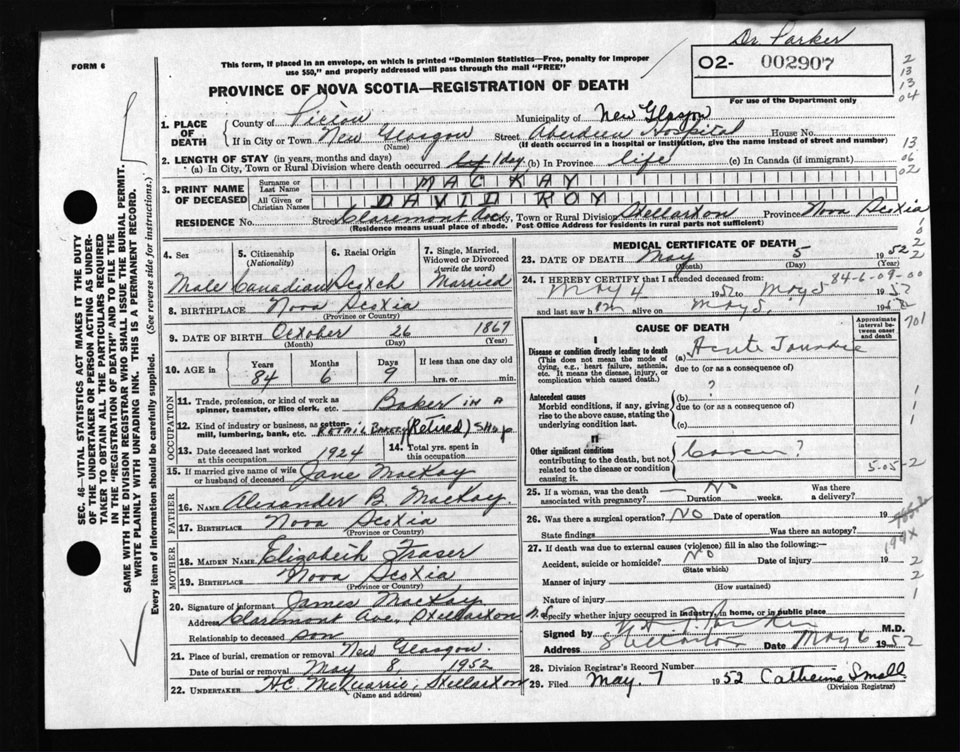 Dr. Parker
FORM 6
This form, if placed in an envelope, on which is printed "Dominion Statistics—Free, penalty for improper
use $50," and properly addressed will pass through the mail "FREE"
O2- 002907
For use of the Department only
PROVINCE OF NOVA SCOTIA—REGISTRATION OF DEATH
1. PLACE OF DEATH
County of Pictou Municipality of New Glasgow
If in City or Town New Glasgow Street Aberdeen Hospital House No.
(Name) (If death occurred in a hospital or institution, give the name instead of street and number)
2. LENGTH OF STAY (in years, months and days)
(a) In City, Town or Rural Division where death occurred 1 day (b) In Province life (c) In Canada (if immigrant)
3. PRINT NAME OF DECEASED
Surname or Last Name MACKAY
All Given or Christian Names DAVID ROY
RESIDENCE No. Street Claremont Ave City, Town or Rural Division Stellarton Province Nova Scotia
(Residence means usual place of abode. Post Office Address for residents in rural parts not sufficient)
4. Sex Male
5. Citizenship (Nationality) Canadian
6. Racial Origin Scotch
7. Single, Married, Widowed or Divorced (write the word) Married
8. BIRTHPLACE Nova Scotia
(Province or Country)
9. DATE OF BIRTH October 26 1867
(Month) (Day) (Year)
10. AGE in Years 84 Months 6 Days 9 If less than one day old hrs. or min.
OCCUPATION
11. Trade, profession, or kind of work as spinner, teamster, office clerk, etc. Baker in a
12. Kind of industry or business, as cotton-mill, lumbering, bank, etc. Retail Bakery (Retired) Shop
13. Date deceased last worked at this occupation 1924
14. Total yrs. spent in this occupation
15. If married give name of wife or husband of deceased Jane MacKay
FATHER
16. NAME Alexander B. MacKay.
17. BIRTHPLACE Nova Scotia
(Province or Country)
MOTHER
18. MAIDEN NAME Elizabeth Fraser
19. BIRTHPLACE Nova Scotia
(Province or Country)
20. Signature of informant James MacKay
Address Claremont Ave., Stellarton
Relationship to deceased son
21. Place of burial, cremation or removal New Glasgow.
Date of burial or removal May 8, 1952
22. UNDERTAKER H.C. McQuarrie, Stellarton
(Name and address)
MEDICAL CERTIFICATE OF DEATH
23. DATE OF DEATH May 5 1952
(Month) (Day) (Year)
84-6-09-00
24. I HEREBY CERTIFY that I attended deceased from:
May 4 1952 to May 5 1952
and last saw him alive on May 5, 1952
CAUSE OF DEATH
Approximate interval between onset and death
I
Disease or condition directly leading to death (a) Acute
(This does not mean the mode of dying, e.g., heart failure, asthenia, etc. It means the disease, injury, or complication which caused death.)
due to (or as a consequence of)
Antecedent causes
Morbid conditions, if any, giving rise to the above cause, stating the underlying condition last.
(b) ?
due to (or as a consequence of)
(c)
II
Other significant conditions
contributing to the death, but not related to the disease or condition causing it.
5-05-2
25. If a woman, was the death associated with pregnancy? No Duration weeks. Was there a delivery?
26. Was there a surgical operation? NO Date of operation 19
State findings Was there an autopsy?
27. If death was due to external causes (violence) fill in also the following:
Accident, suicide or homicide? No Date of injury 19
(State which)
Manner of injury
(How sustained)
Nature of injury
Specify whether injury occurred in industry, in home, or in public place
Signed by Parker M.D.
Address Stellarton Date May 6 1952
28. Division Registrar's Record Number
29. Filed May. 7 1952 Catherine Small
(Division Registrar)
SEC. 46—VITAL STATISTICS ACT MAKES IT THE DUTY
OF THE UNDERTAKER OR PERSON ACTING AS UNDER-
TAKER TO OBTAIN ALL THE PARTICULARS REQUIRED
IN THE "REGISTRATION OF DEATH" AND TO FILE THE
SAME WITH THE DIVISION REGISTRAR WHO SHALL ISSUE THE BURIAL PERMIT.
WRITE PLAINLY WITH UNFADING INK. THIS IS A PERMANENT RECORD.
Every item of information should be carefully supplied. (See reverse side for instructions.)
2
13
13
04
13
06
02
701